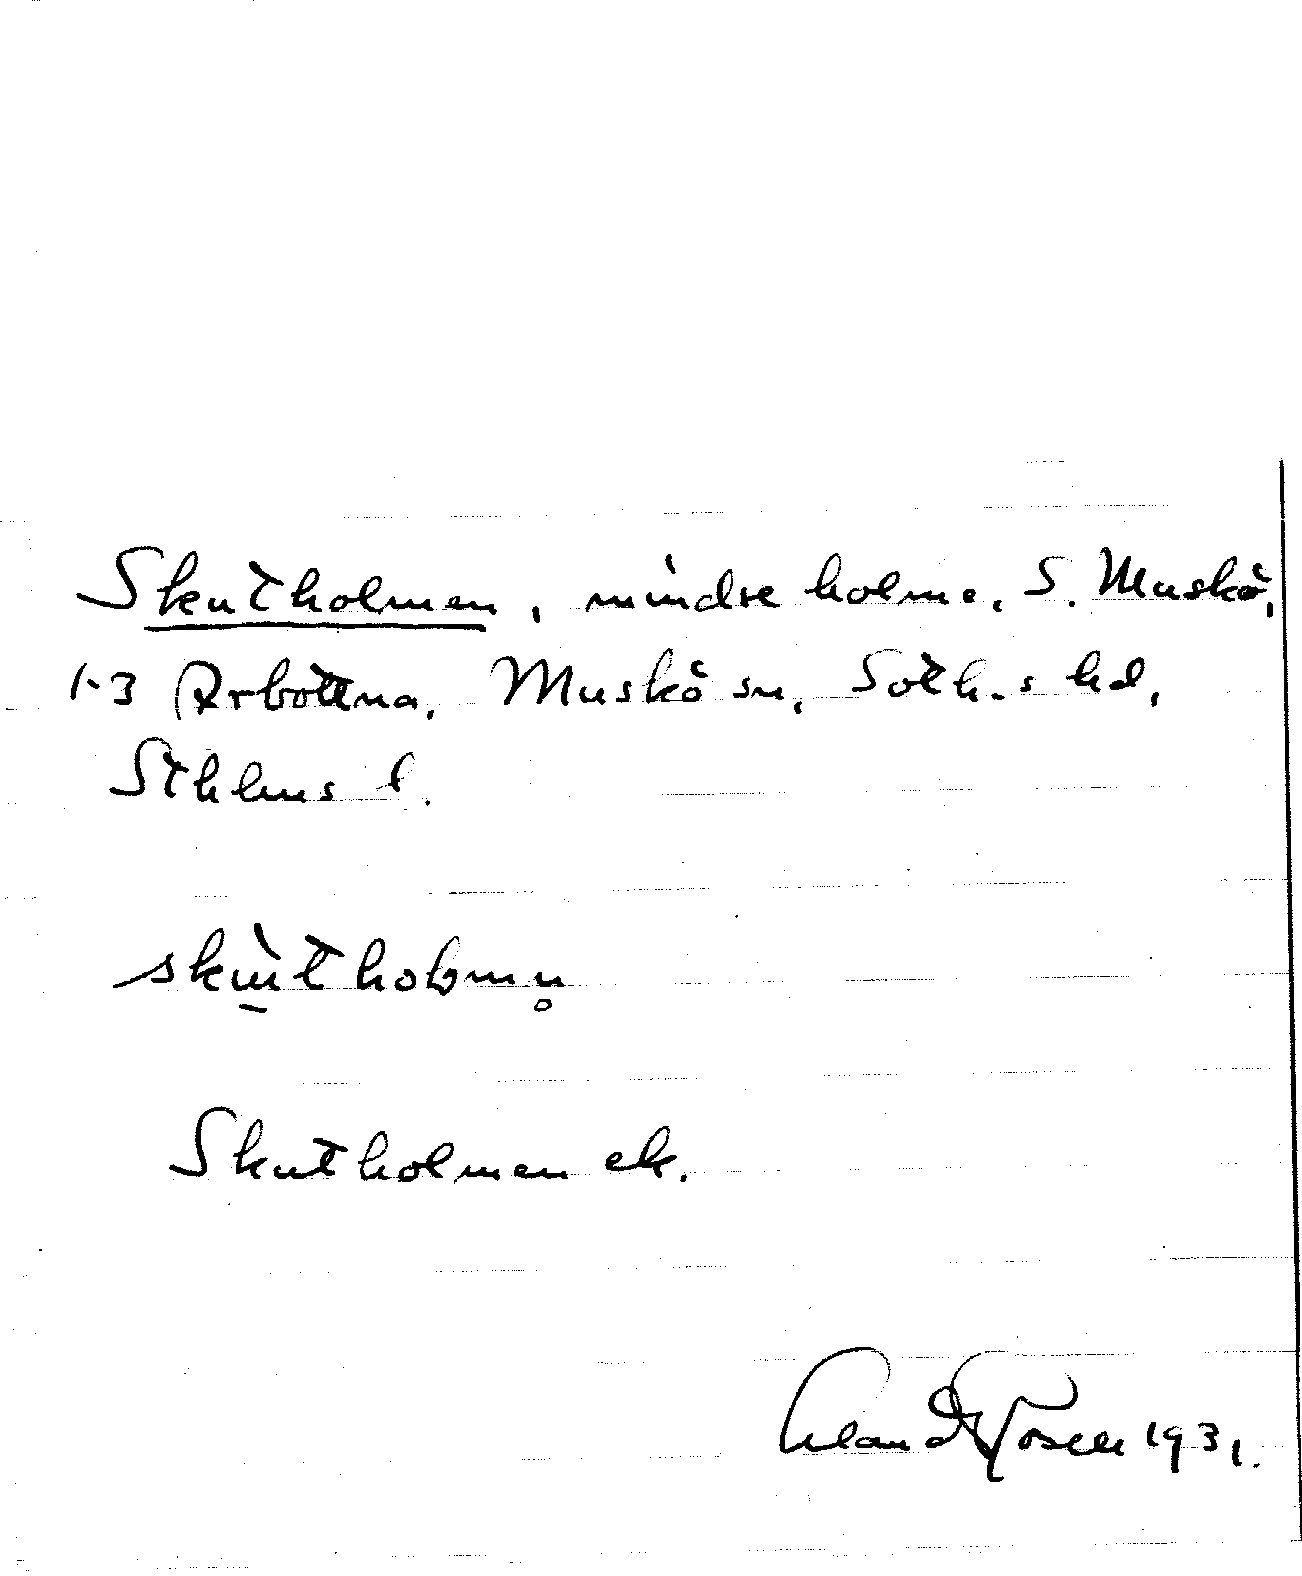 Skutholmen, mindre holme, S. Muskö,
1-3 Arbottna, Muskö sn, Soth.s hd,
Sthlms l.
skùtholmn̥
Skutholmen ek.
1931.